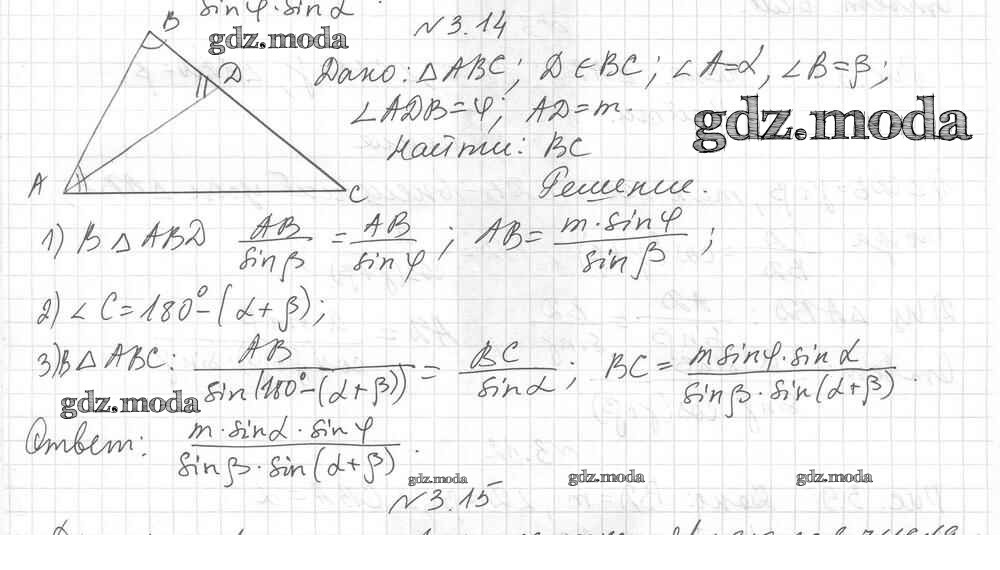 sin φ · sin α
N 3.14
B
gdz.moda
D
A
C
Дано: △ABC; D ∈ BC; ∠A=α, ∠B=β;
∠ADB=φ; AD=m.
gdz.moda
Найти: BC
Решение.
1) В △ ABD AB/sin β = AB/sin φ; AB = m·sin φ/sin β;
2) ∠C=180°-(α+β);
3) В △ ABC: AB/sin(180°-(α+β)) = BC/sin α; BC = m sin φ · sin α/sin β · sin(α+β).
gdz.moda
Ответ: m · sin α · sin φ/sin β · sin(α+β).
gdz.moda gdz.moda gdz.moda
N 3.15